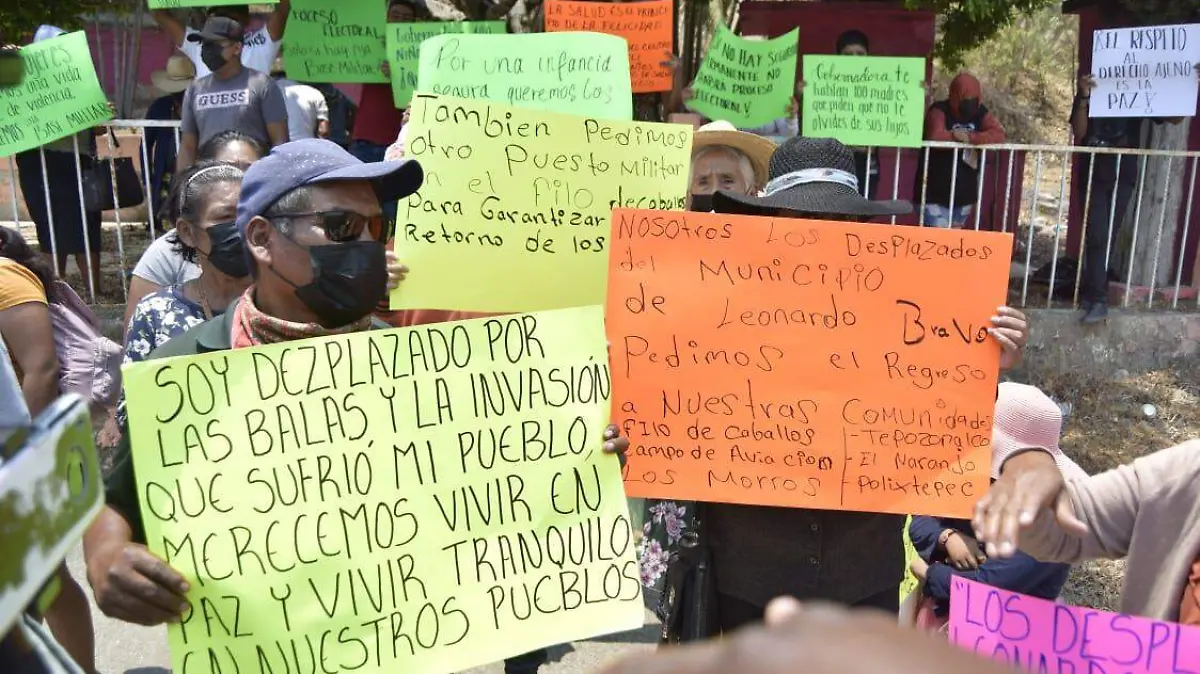 PROCESO
ELECTORAL
Habra.no HAYA
Base MILITAR
LA SALUD ES UN PRINCI
Por una infancia
segura queremos los
MANENTE NO
PARA PROCESO
ELECTORAL
Gobernadora te
hablan 100 madres
que piden que no te
olvides de sus hijos
EL RESPETO
AL DERECHO AJENO
ES LA
PAZ!
UNA VIDA
DE VIOLENCIA.
BASE MILITAR
También Pedimos
otro Puesto Militar
en el filo de caballos
Para Garantizar
Retorno de los
GUESS
SOY DEZPLAZADO POR
LAS BALAS Y LA INVASIÓN
QUE SUFRIÓ MI PUEBLO,
MERECEMOS VIVIR EN
PAZ Y VIVIR TRANQUILO
EN NUESTROS PUEBLOS
NOSOTROS LOS DESPLAZADOS
del MUNICIPIO
de Leonardo BRAVO
Pedimos el Regreso
a NUESTRAS COMUNIDADES
FILO de CABALLOS - TEPOZONALCO
Campo de Aviacion - El Naranjo
LOS MORROS - Polixtepec
"LOS DESPL